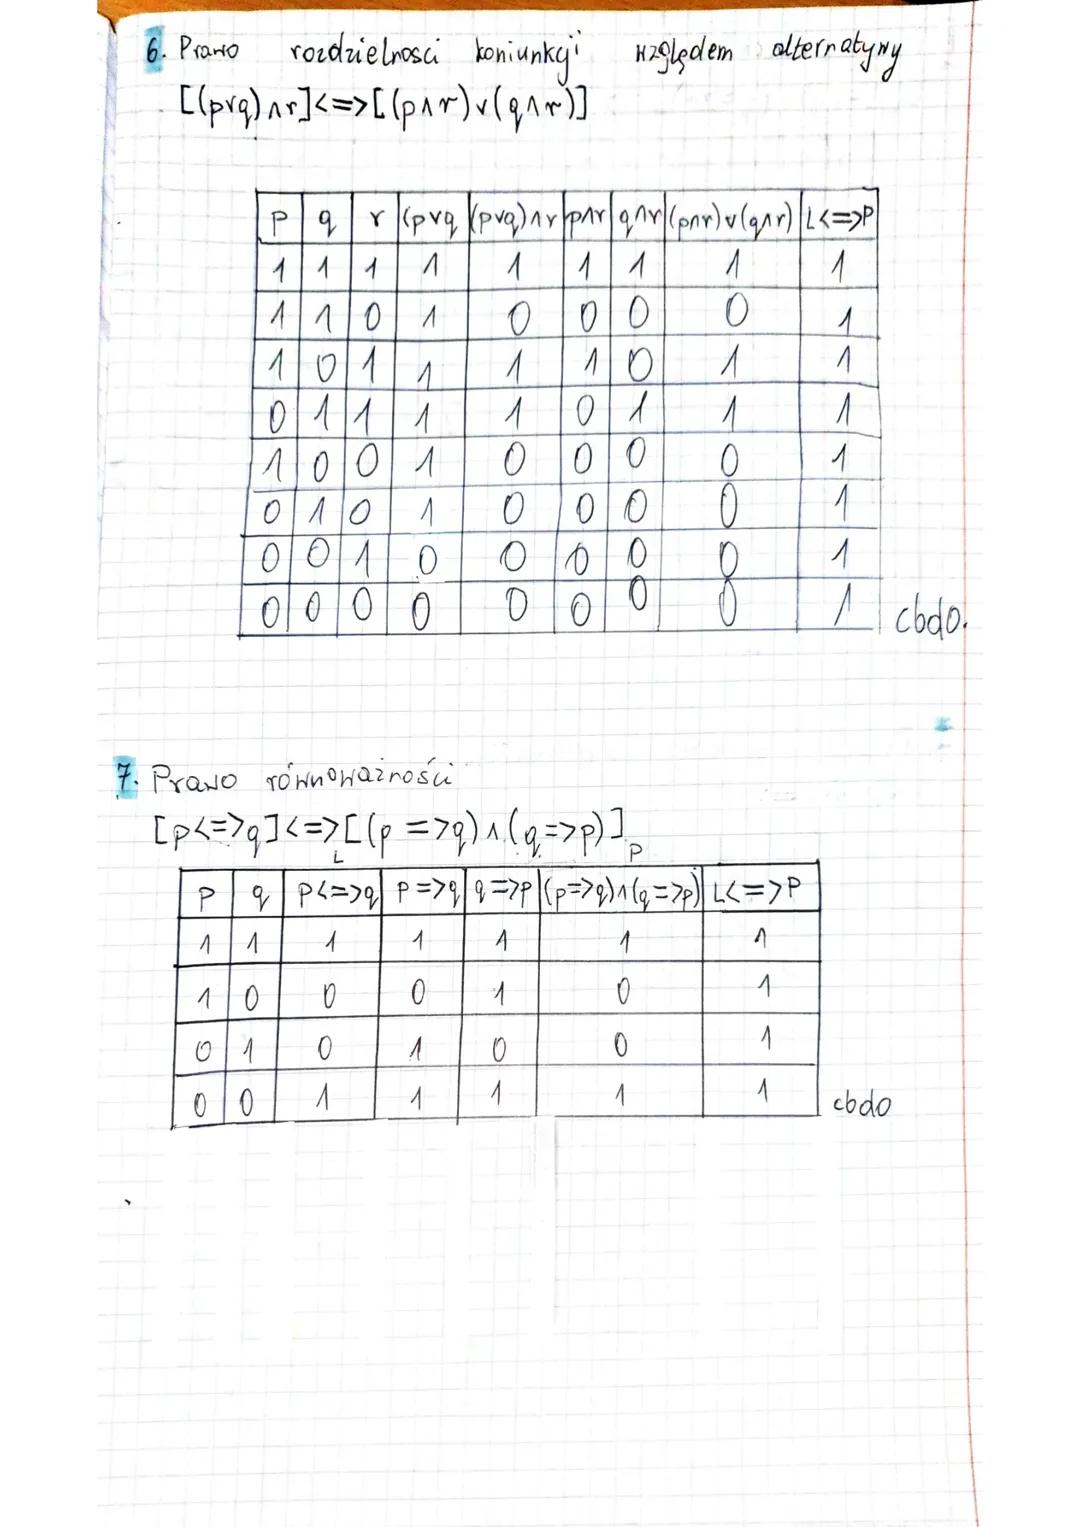 6. Prawo rozdzielności koniunkcji względem alternatywy
[(p∨q)∧r]<=>[(p∧r)∨(q∧r)]
p q r (p∨q (p∨q)∧r p∧r q∧r (p∧r)∨(q∧r) L<=>P
1 1 1 1 1 1 1 1 1
1 1 0 1 0 0 0 0 1
1 0 1 1 1 1 0 1 1
0 1 1 1 1 0 1 1 1
1 0 0 1 0 0 0 0 1
0 1 0 1 0 0 0 0 1
0 0 1 0 0 0 0 0 1
0 0 0 0 0 0 0 0 1 cbdo.
7. Prawo równoważności
[p<=>q]<=>[(p=>q)∧(q=>p)]
L P
p q p<=>q p=>q q=>p (p=>q)∧(q=>p) L<=>P
1 1 1 1 1 1 1
1 0 0 0 1 0 1
0 1 0 1 0 0 1
0 0 1 1 1 1 1 cbdo